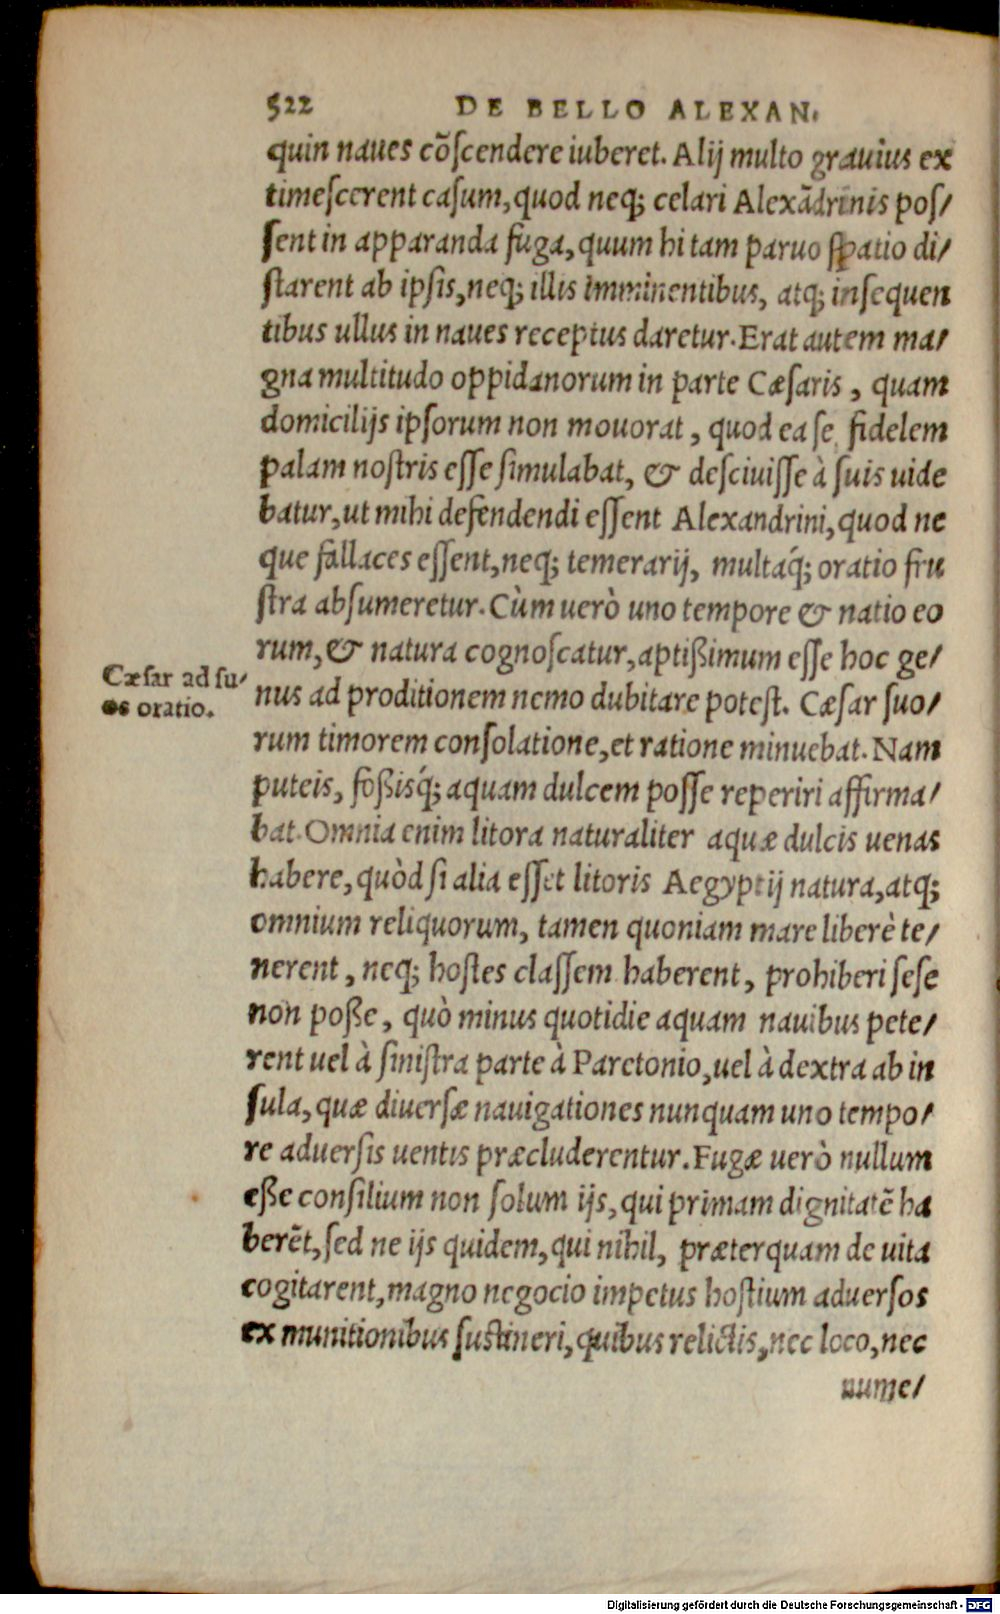 522 DE BELLO ALEXAN.
quin naues cõſcendere iuberet. Alij multo grauius ex
timeſcerent caſum, quod neq; celari Alexãdrinis poſ/
ſent in apparanda fuga, quum hi tam paruo ſpatio di/
ſtarent ab ipſis, neq; illis imminentibus, atq; inſequen
tibus ullus in naues receptus daretur. Erat autem ma/
gna multitudo oppidanorum in parte Cæſaris, quam
domicilijs ipſorum non mouorat, quod ea ſe fidelem
palam noſtris eſſe ſimulabat, & deſciuiſſe à ſuis uide
batur, ut mihi defendendi eſſent Alexandrini, quod ne
que fallaces eſſent, neq; temerarij, multaq́; oratio fru
ſtra abſumeretur. Cùm uerò uno tempore & natio eo
rum, & natura cognoſcatur, aptißimum eſſe hoc ge/
Cæſar ad ſu/
os oratio.
nus ad proditionem nemo dubitare poteſt. Cæſar ſuo/
rum timorem conſolatione, et ratione minuebat. Nam
puteis, foßisq́; aquam dulcem poſſe reperiri affirma/
bat. Omnia enim litora naturaliter aquæ dulcis uenas
habere, quòd ſi alia eſſet litoris Aegyptij natura, atq;
omnium reliquorum, tamen quoniam mare liberè te/
nerent, neq; hoſtes claſſem haberent, prohiberi ſeſe
non poße, quò minus quotidie aquam nauibus pete/
rent uel à ſiniſtra parte à Paretonio, uel à dextra ab in
ſula, quæ diuerſæ nauigationes nunquam uno tempo/
re aduerſis uentis præcluderentur. Fugæ uerò nullum
eße conſilium non ſolum ijs, qui primam dignitatẽ ha
berẽt, ſed ne ijs quidem, qui nihil, præterquam de uita
cogitarent, magno negocio impetus hoſtium aduerſos
ex munitionibus ſuſtineri, quibus relictis, nec loco, nec
nume/
Digitalisierung gefördert durch die Deutsche Forschungsgemeinschaft - DFG